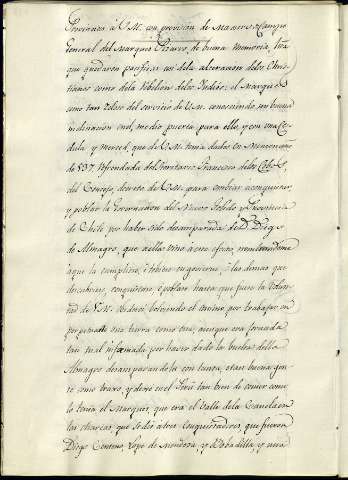 Provincias á V.M. con provision de Maestre de Campo
General del Marques Pizarro, de buena memoria, hta
que quedaron pacificas asi dela alteracion delos Chris-
tianos como dela rebelion delos Indios, el Marques
como tan zeloso del servicio de V.M. conociendo, mi buena
inclinacion en el, medió puerta para ello, y con una Ce-
dula y merced, que de V.M. tenia dada en Monzon año
de 537. refrendada del Secretario Francisco delos Cobos,
del Consejo, secreto de V.M. para embiar aconquistar,
y poblar la Governacion del Nuevo Toledo y Provincia
de Chile por haber sido desamparada de D. Diego
de Almagro, que a ella vino à este efecto, nombrandome
à que la cumpliese, è tubiese en govierno, è las demas que
descubriese, conquistase, è poblase hasta que fuese la volun-
tad de V.M. obedecí, bolviendo el animo por trabajar en
perpetuarle una tierra como esta, aunque era jornada
tan mal infamada por haver dado la buelta della
Almagro desamparandola con tanta, è tan buena gen-
te como traxo, y dexé en el Perú tan bien de comer como
lo tenia el Marques, que era el Valle dela Canela en
los charcas, que se dió à tres conquistadores, que fueron
Diego Centeno, Lope de Mendoza, y Bobadilla, y una